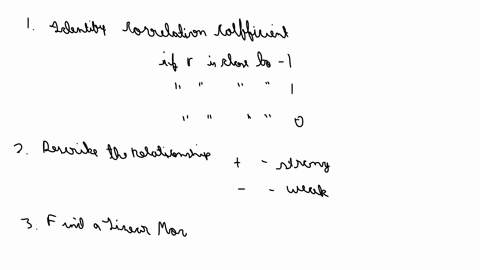 1. Identify Correlation Coefficient
if r is close to -1
" " " " 1
" " " " 0
2. Describe the relationship + - strong
- - weak
3. Find a Linear Mo